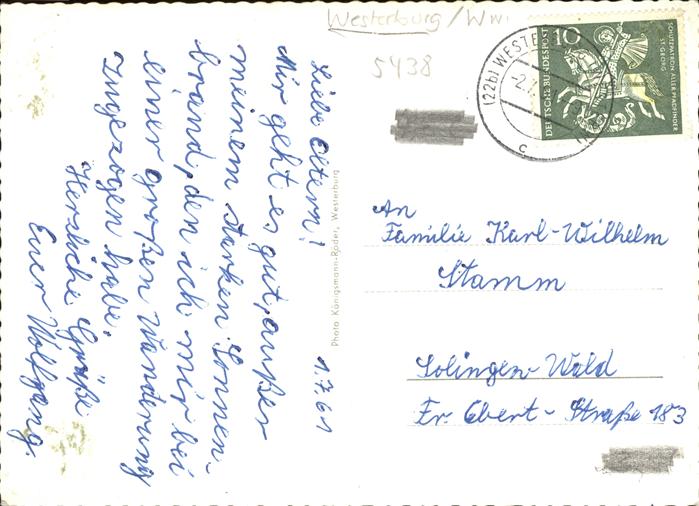 Westerburg/Ww.
5438
10
DEUTSCHE BUNDESPOST
SCHUTZPATRON ALLER PFADFINDER
ST. GEORG
(22b) WESTE
-2.7.
c
1.7.61
Liebe Eltern!
Mir geht es gut, außer
meinem starken Sonnen-
brand, den ich mir bei
einer großen Wanderung
zugezogen habe.
Herzliche Grüße
Euer Wolfgang.
Photo Königsmann-Röder, Westerburg
An
Familie Karl-Wilhelm
Stamm
Solingen-Wald
Fr. Ebert-Straße 183